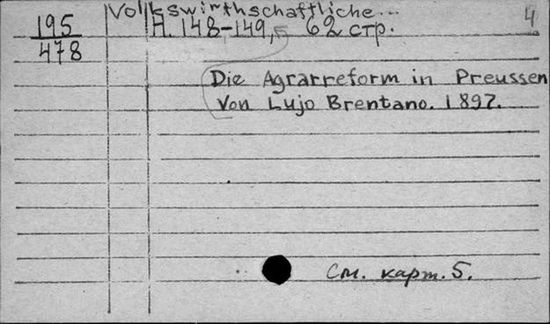 Volkswirthschaftliche... 4
195
478
H. 148-149, 62 стр.
Die Agrarreform in Preussen
Von Lujo Brentano. 1897.
См. карт. 5.